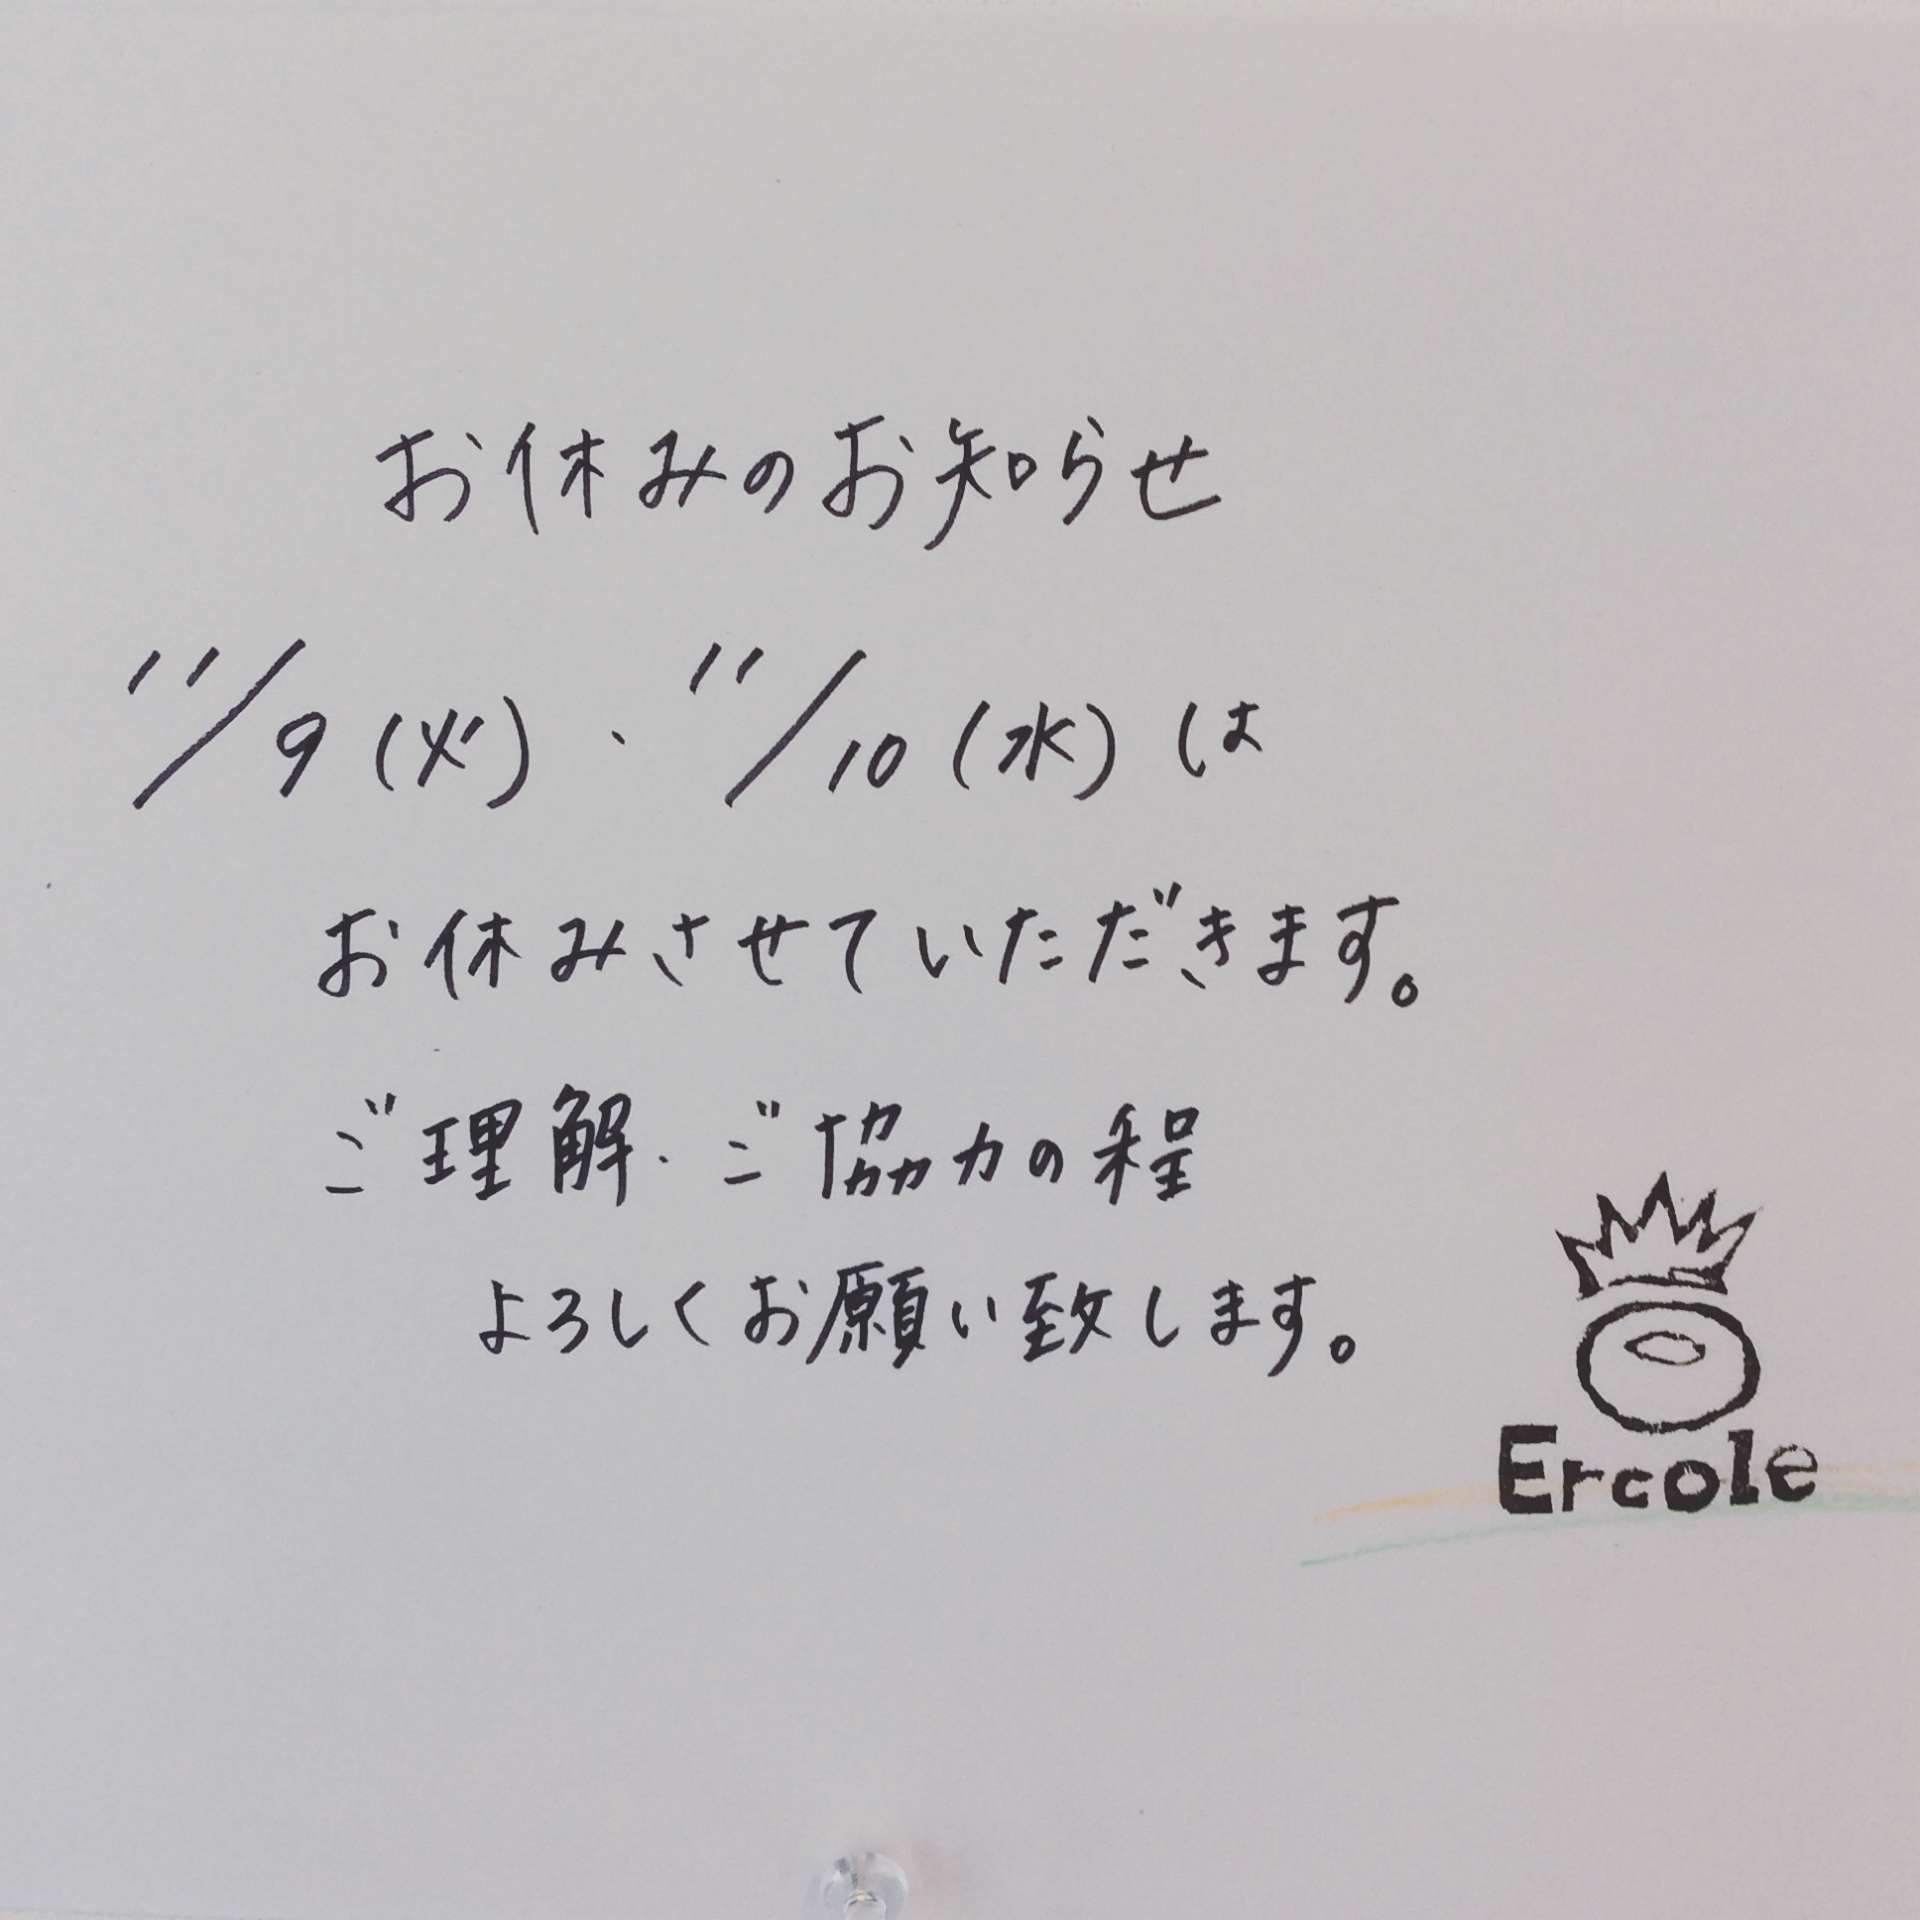 お休みのお知らせ
11/9(火)、11/10(水)は
お休みさせていただきます。
ご理解・ご協力の程
よろしくお願い致します。
Ercole